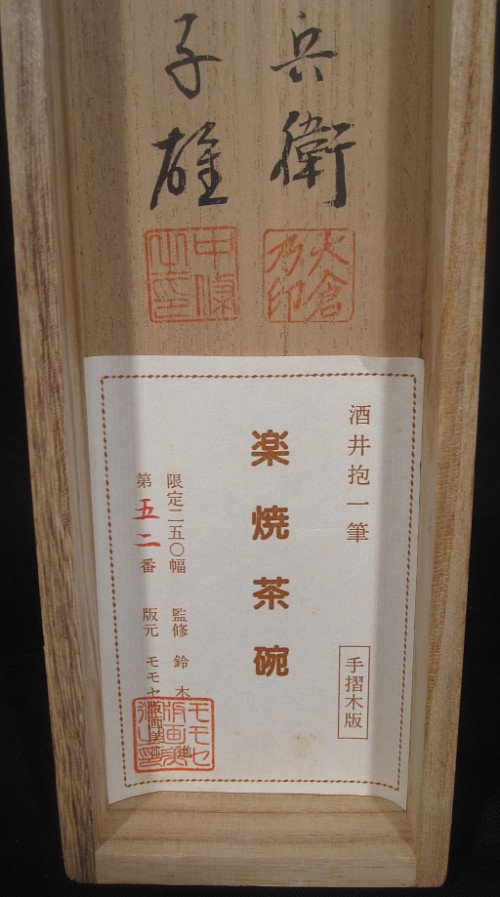 兵衛
大倉乃印
子雄
中條之印
酒井抱一筆
手摺木版
楽焼茶碗
限定二五〇幅 監修 鈴木
第五二番 版元 モモセ